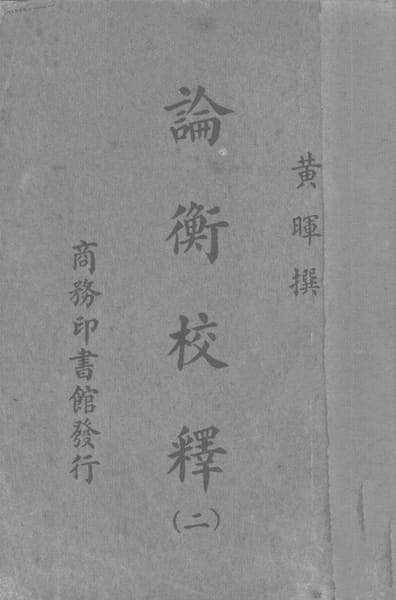 黄暉撰
論衡校釋
(二)
商務印書館發行